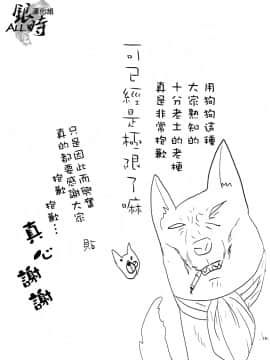 用狗狗這種
大家熟知的
十分老土的老梗
真是非常抱歉
可已經是極限了嘛
只是因此而興奮
真的都要感謝大家
抱歉抱歉…
貼
真心謝謝
銀時
ALL
漢化組